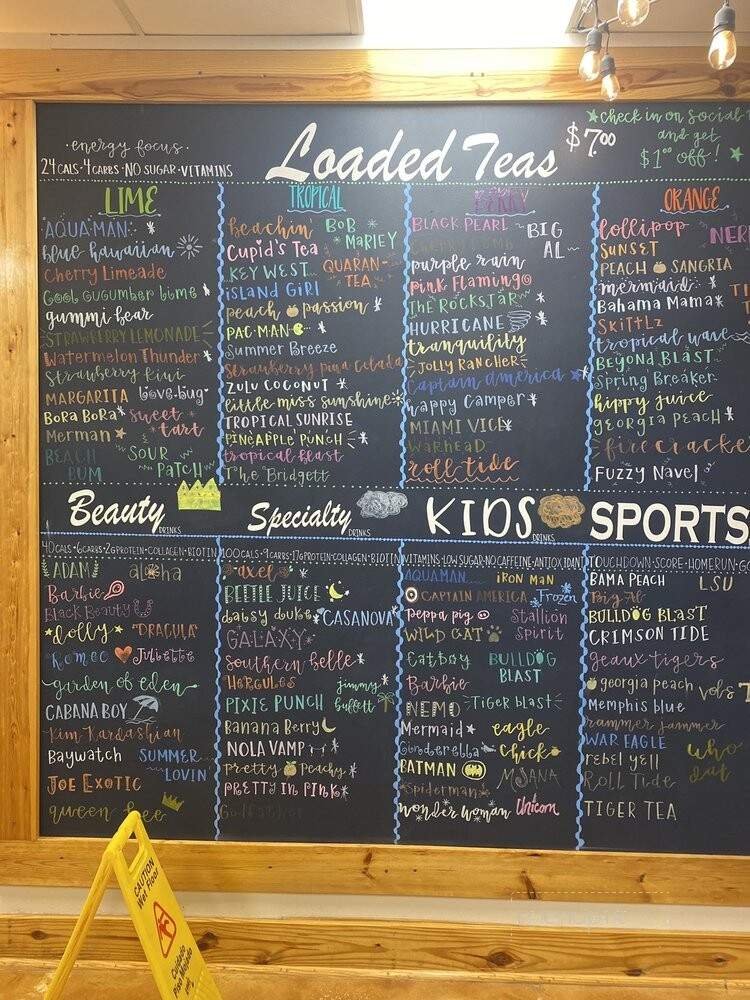 ·energy focus·
24 CALS·4 CARBS·NO SUGAR·VITAMINS
Loaded Teas
$7.00
check in on social
and get
$1.00 off!
LIME
AQUAMAN
blue hawaiian
Cherry Limeade
Cool Cucumber Lime
gummi bear
STRAWBERRY LEMONADE
Watermelon Thunder
Strawberry Kiwi
MARGARITA
Love-bug
BORA BORA
sweet
tart
Merman
BEACH
BUM
SOUR
PATCH
TROPICAL
beachin'
BOB
MARLEY
CUPID'S TEA
KEY WEST
QUARAN-
TEA
ISLAND GIRL
peach passion
PAC-MAN
Summer Breeze
Strawberry pina colada
ZULU COCONUT
little miss sunshine
TROPICAL SUNRISE
PINEAPPLE PUNCH
tropical blast
The Bridgett
BERRY
BLACK PEARL
BIG
AL
CHERRY BOMB
purple rain
pink Flamingo
The ROCKSTAR
HURRICANE
tranquility
JOLLY RANCHER
Captain America
Happy Camper
MIAMI VICE
WARHEAD
roll tide
ORANGE
lollipop
SUNSET
PEACH SANGRIA
mermaid
Bahama Mama
SKITTLZ
tropical wave
BEYOND BLAST
Spring Breaker
hippy juice
GEORGIA PEACH
fire cracke
FUZZY NAVEL
Beauty
DRINKS
40 CALS·6 CARBS·2G PROTEIN·COLLAGEN·BIOTIN
ADAM
aloha
Barbie
Black Beauty
dolly
"DRACULA"
Romeo Juliette
garden of eden
CABANA BOY
Kim Kardashian
Baywatch
SUMMER
LOVIN'
JOE EXOTIC
queen bee
Specialty
DRINKS
100 CALS·9 CARBS·17G PROTEIN·COLLAGEN·BIOTIN
axel
BEETLE JUICE
daisy duke
CASANOVA
GALAXY
southern belle
HERCULES
jimmy
buffett
PIXIE PUNCH
Banana Berry
NOLA VAMP
pretty Peachy
PRETTY IN PINK
KIDS
DRINKS
VITAMINS·LOW SUGAR·NO CAFFEINE·ANTIOXIDANT
AQUAMAN
IRON MAN
CAPTAIN AMERICA
Frozen
Peppa pig
Stallion
Spirit
WILD CAT
Catboy
BULLDOG
BLAST
Barbie
NEMO
Tiger blast
Mermaid
eagle
Cinderella
Chick
BATMAN
MOANA
Spiderman
wonder woman
Unicorn
SPORTS
TOUCHDOWN·SCORE·HOMERUN·GO
BAMA PEACH
LSU
Big Al
BULLDOG BLAST
CRIMSON TIDE
geaux tigers
georgia peach
vols
Memphis blue
rammer jammer
WAR EAGLE
who
dat
rebel yell
Roll Tide
TIGER TEA
CAUTION
Wet Floor
Cuidado
Piso Mojado